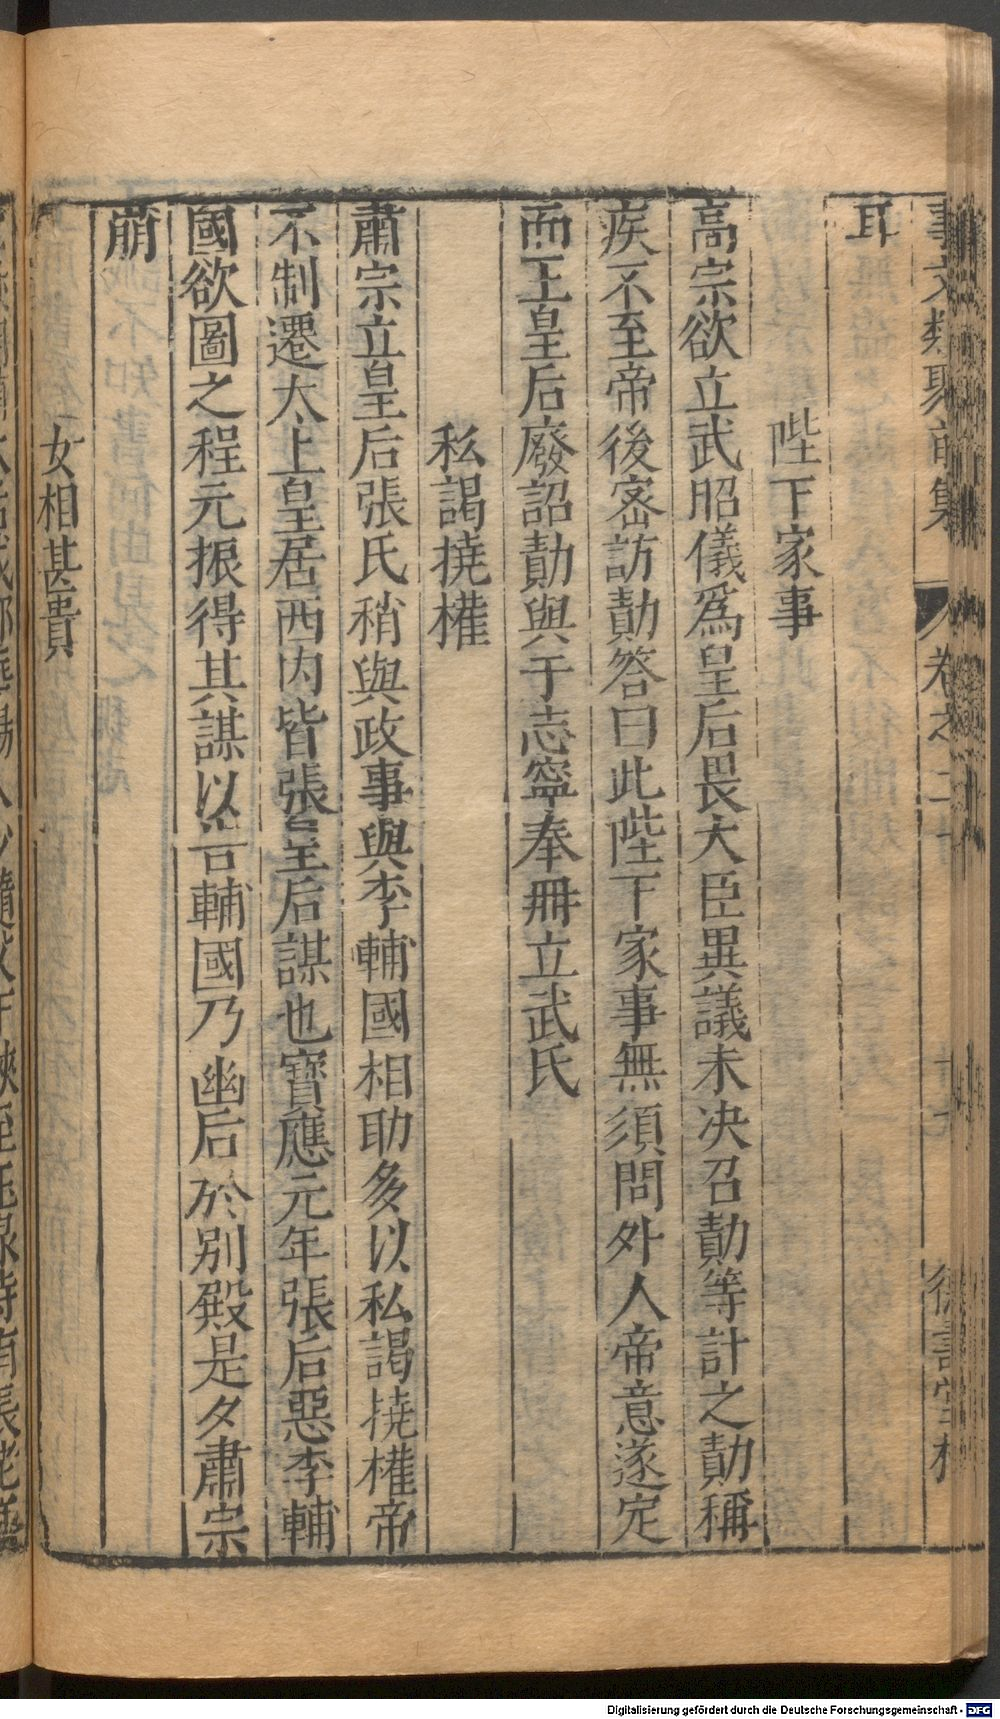 事文類聚前集 卷之二十
耳
陛下家事
高宗欲立武昭儀爲皇后畏大臣異議未决召勣等計之勣稱
疾不至帝後宻訪勣答曰此陛下家事無須問外人帝意遂定
而王皇后廢詔勣與于志寧奉冊立武氏
私謁撓權
肅宗立皇后張氏稍與政事與李輔國相助多以私謁撓權帝
不制遷太上皇居西内皆張皇后謀也寶應元年張后惡李輔
國欲圖之程元振得其謀以告輔國乃幽后於别殿是夕肅宗
崩
女相甚貴
Digitalisierung gefördert durch die Deutsche Forschungsgemeinschaft - DFG